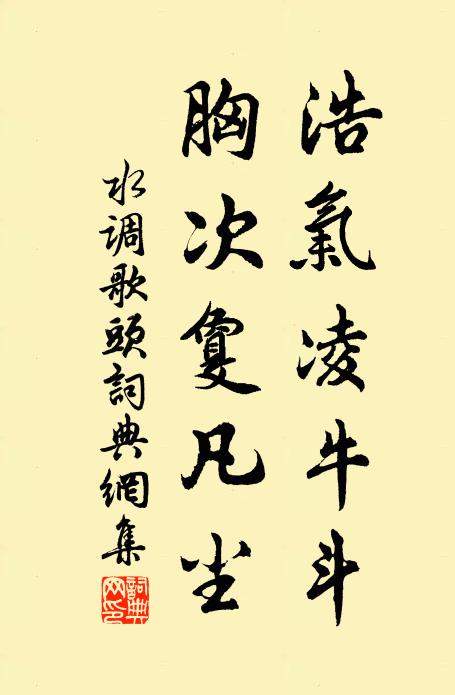 浩氣凌牛斗
胸次夐凡尘
水调歌頭詞典網集
詞典
网印